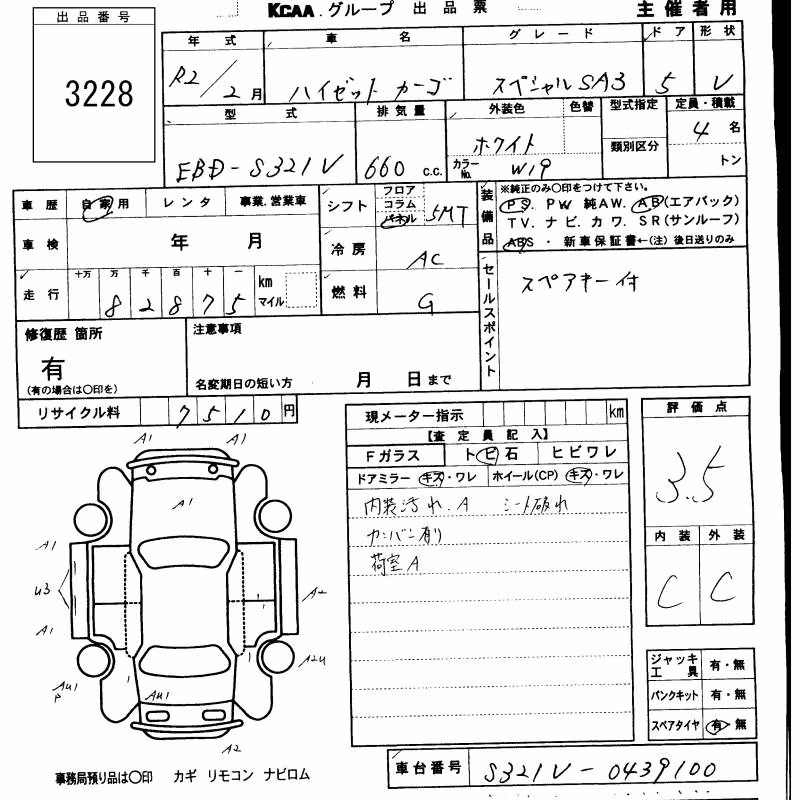 KCAA グループ 出品票 主催者用
出品番号
3228
年式 車名 グレード ドア 形状
R2/2月 ハイゼット カーゴ スペシャル SA3 5 V
型式 排気量 外装色 色替 型式指定 定員・積載
EBD-S321V 660 c.c. ホワイト 類別区分 4名
カラーNo. W19 トン
車歴 自家用 レンタ 事業.営業車
シフト フロア コラム パネル 5MT
装備品 ※純正のみ〇印をつけて下さい。
PS. PW. 純AW. AB(エアバック)
TV. ナビ. カワ. SR(サンルーフ)
ABS ・ 新車保証書←(注) 後日送りのみ
車検 年 月
冷房 AC
走行 十万 万 千 百 十 一 km マイル
82875
燃料 G
セールスポイント スペアキー付
修復歴 箇所 注意事項
有
(有の場合は〇印を) 名変期日の短い方 月 日まで
リサイクル料 7510円
現メーター指示 km
【査定員記入】
Fガラス トビ石 ヒビワレ
ドアミラー キズ・ワレ ホイール(CP) キズ・ワレ
内装汚れ.A シート破れ
カンバン有り
荷室A
評価点
3.5
内装 外装
C C
A1 A1
A1
A1
U3 A2
A1
A2U
AU1 P
AU1
A2
ジャッキ工具 有・無
パンクキット 有・無
スペアタイヤ 有・無
事務局預り品は〇印 カギ リモコン ナビロム
車台番号 S321V-0439100